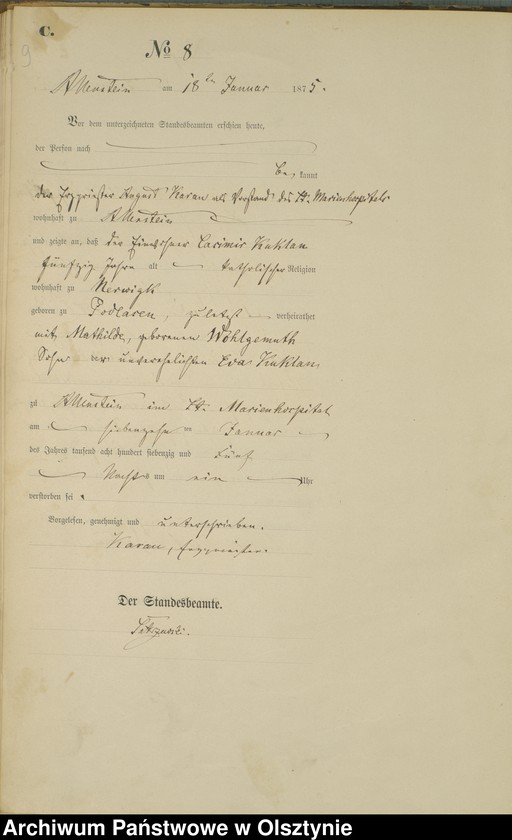 C.
9
No 8
Allenstein am 18ten Januar 1875.
Vor dem unterzeichneten Standesbeamten erschien heute,
der Person nach
bekannt
der Erzpriester August Karau als Vorstand des St. Marienhospitals
wohnhaft zu Allenstein
und zeigte an, daß der Einwohner Casimir Kuklan
fünfzig Jahre alt katholischer Religion
wohnhaft zu
geboren zu Podlaren, zuletzt verheirathet
mit Mathilde, geborenen Wohlgemuth
Sohn der unverehelichten Eva Kuklan
zu Allenstein im St. Marienhospital
am siebenzehn ten Januar
des Jahres tausend acht hundert siebenzig und fünf
Nachts um ein Uhr
verstorben sei.
Vorgelesen, genehmigt und unterschrieben.
Karau, Erzpriester.
Der Standesbeamte.
Archiwum Państwowe w Olsztynie